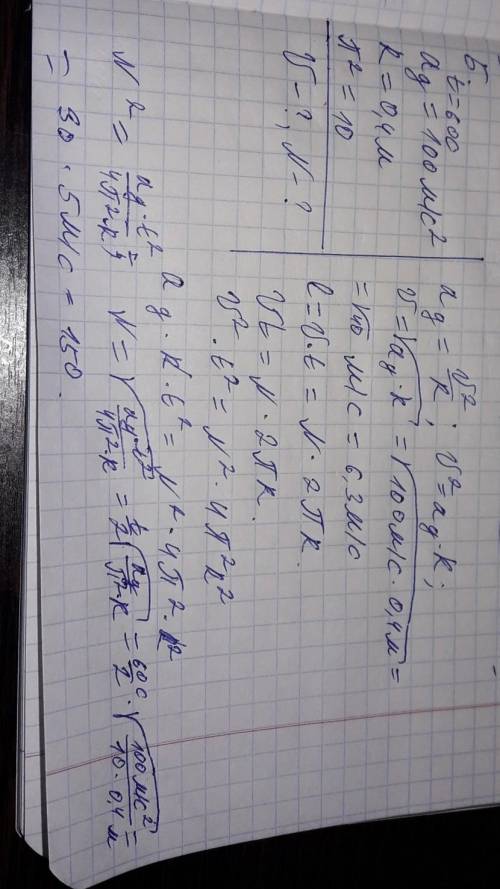 5
t=60c
ag = 100м/с²
R = 0,4м
π² = 10
V-?, N-?
ag = V²/R ; V² = ag·R;
V = √ag·R = √100м/с·0,4м =
= √40 м/с = 6,3м/с
l = V·t = N·2πR.
Vt = N·2πR.
V²·t² = N²·4π²R²
ag·R·t² = N²·4π²·R²
N² = ag·t²/4π²·R ; N = √ag·t²/4π²·R = t/2 √ag/π²·R = 60c/2 · √100м/с²/10·0,4м =
= 30·5м/с = 150.